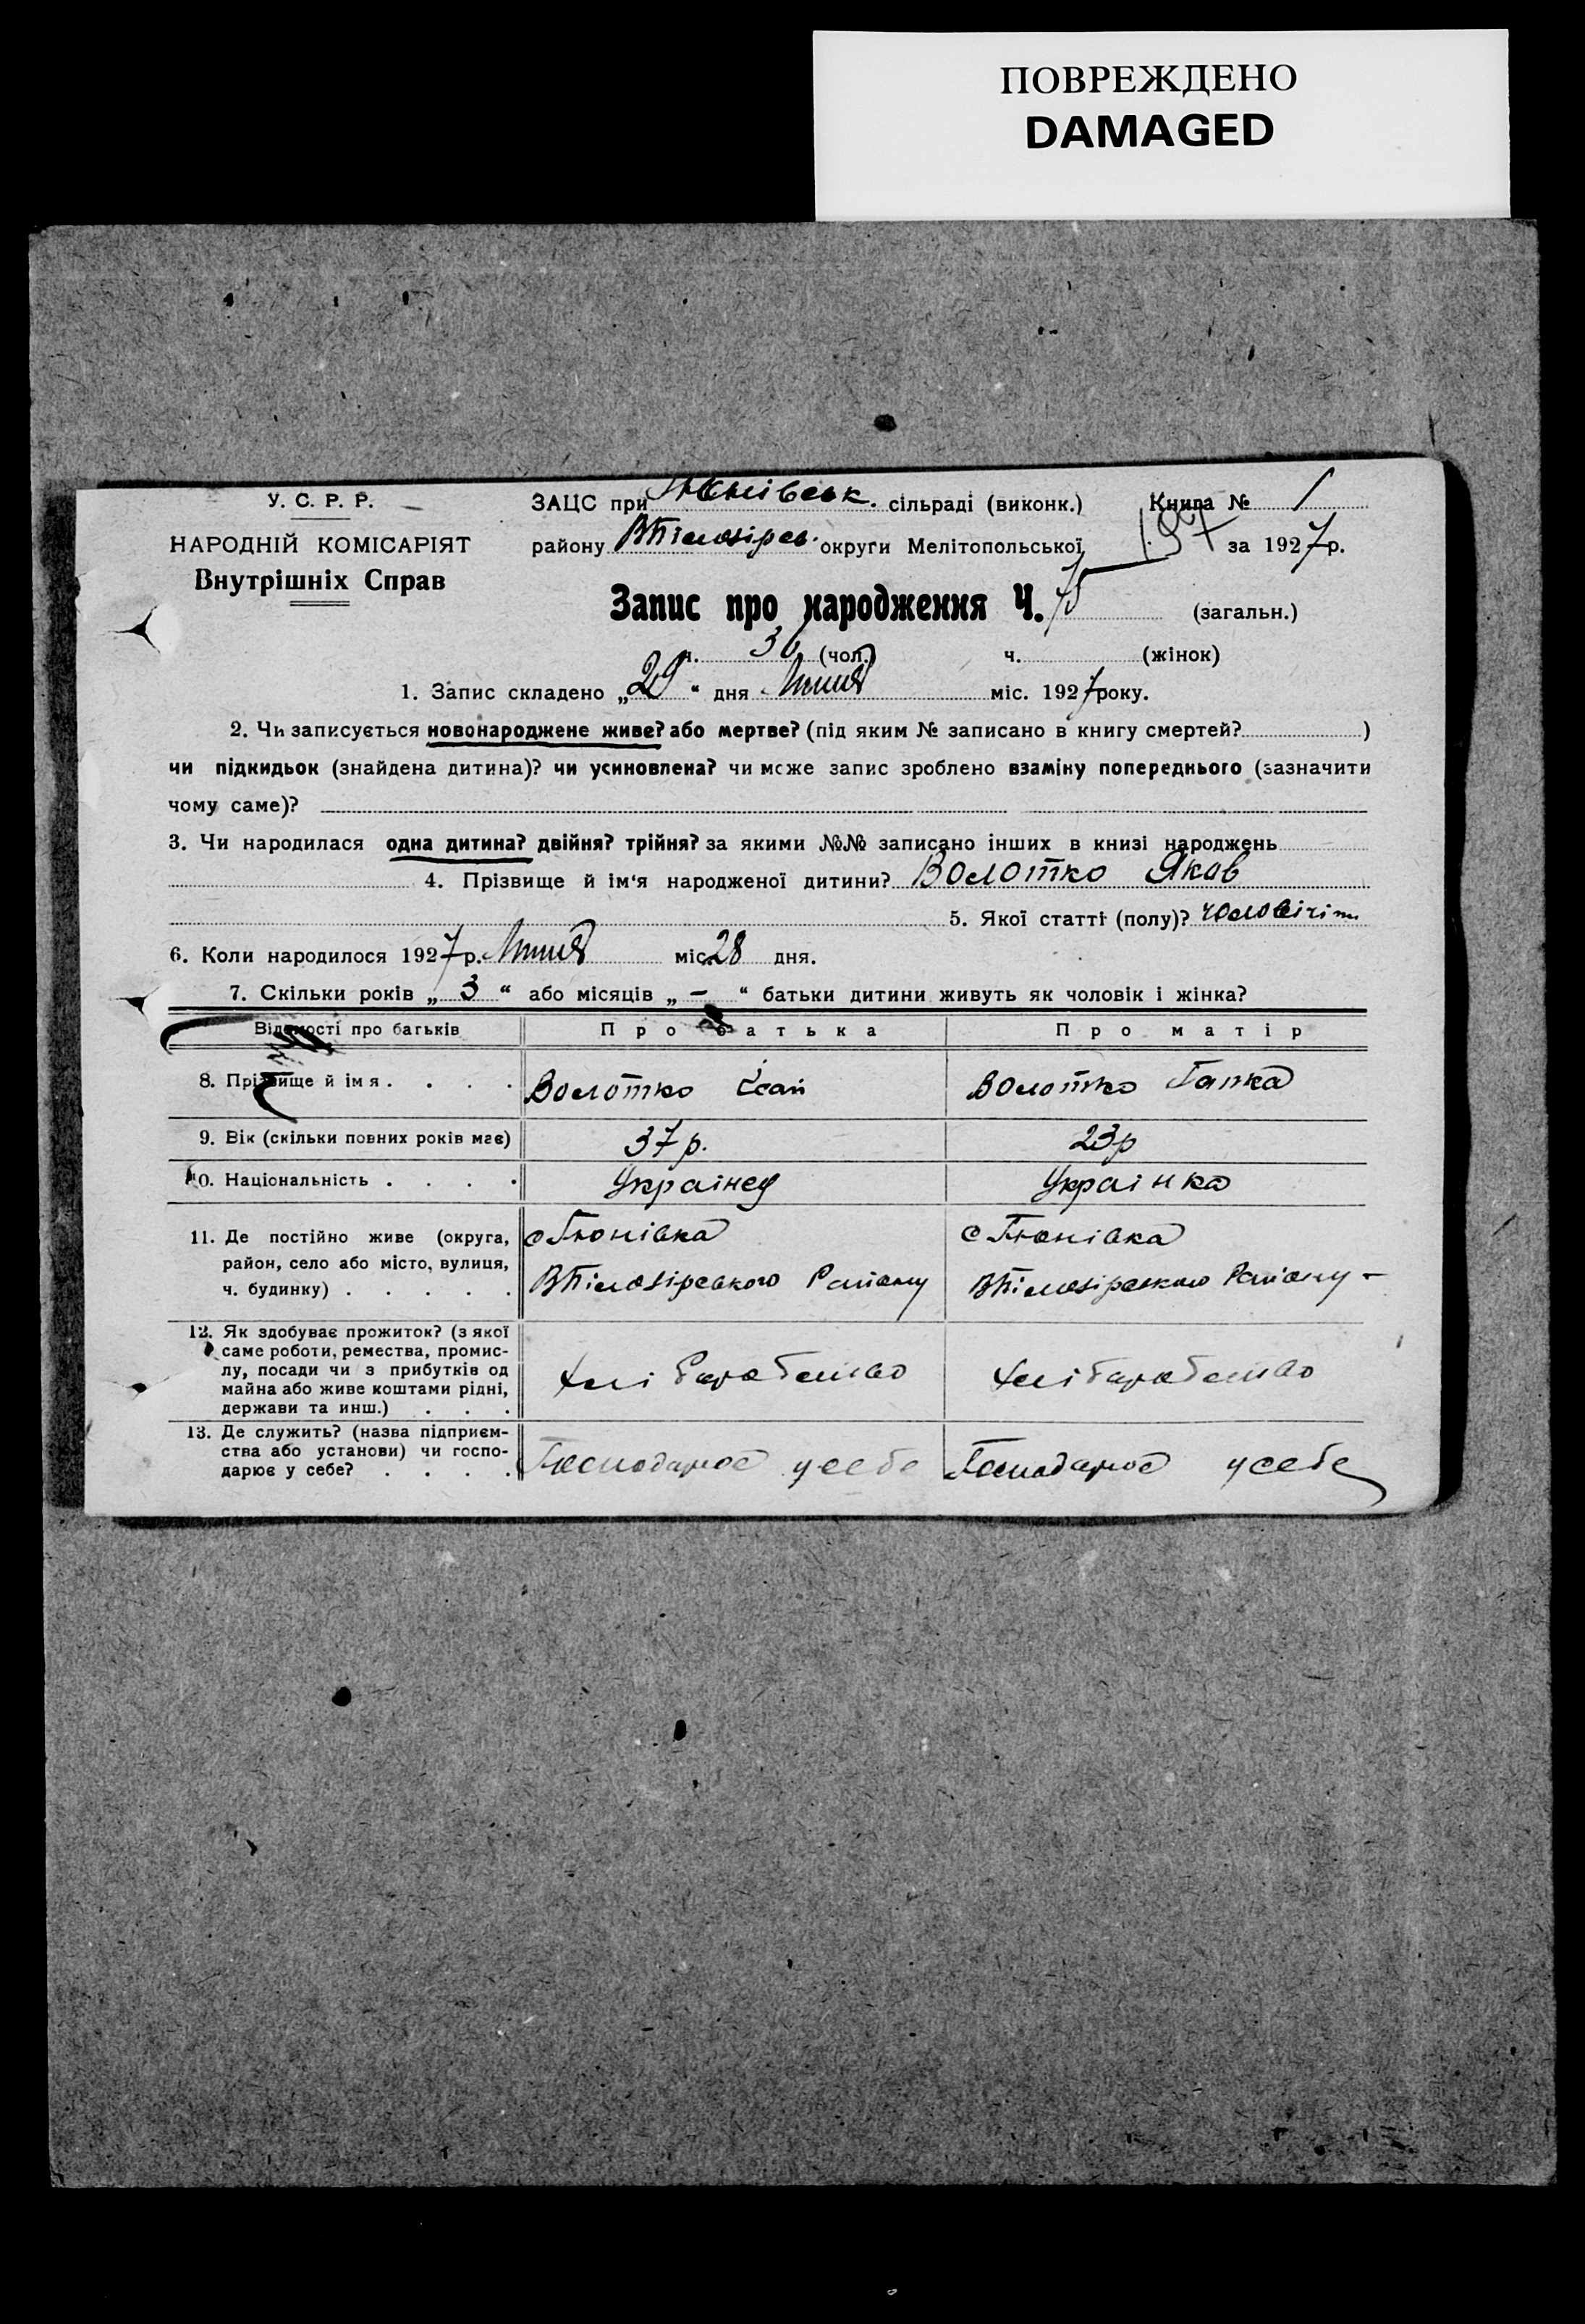 ПОВРЕЖДЕНО
DAMAGED
У. С. Р. Р.
НАРОДНІЙ КОМІСАРІЯТ
Внутрішніх Справ
ЗАЦС при сільраді (виконк.) Книга № 1
району округи Мелітопольської за 1927 р.
Запис про народження Ч. 75 (загальн.)
ч. 36 (чол.) ч. (жінок)
1. Запис складено „29“ дня Липня міс. 1927 року.
2. Чи записується новонароджене живе? або мертве? (під яким № записано в книгу смертей? )
чи підкидьок (знайдена дитина)? чи усиновлена? чи може запис зроблено взаміну попереднього (зазначити
чому саме)?
3. Чи народилася одна дитина? двійня? трійня? за якими №№ записано інших в книзі народжень
4. Прізвище й ім'я народженої дитини? Волотко Яков
5. Якої статті (полу)?
6. Коли народилося 1927 р. Липня міс. 28 дня.
7. Скільки років „3“ або місяців „-“ батьки дитини живуть як чоловік і жінка?
Відомості про батьків Про батька Про матір
8. Прізвище й імя . . . . Волотко Ісай Волотко Гапка
9. Вік (скільки повних років має) 37 р. 23 р
10. Національність . . . . Українец Українка
11. Де постійно живе (округа, с Тюнівка с Тюнівка
район, село або місто, вулиця,
ч. будинку) . . . . . ВБілозірського Району ВБілозірського Району
12. Як здобуває прожиток? (з якої
саме роботи, ремества, промис-
лу, посади чи з прибутків од Хліборобство Хліборобство
майна або живе коштами рідні,
держави та инш.) . . .
13. Де служить? (назва підприєм-
ства або установи) чи госпо- Господарює у себе Господарює у себе
дарює у себе? . . . .